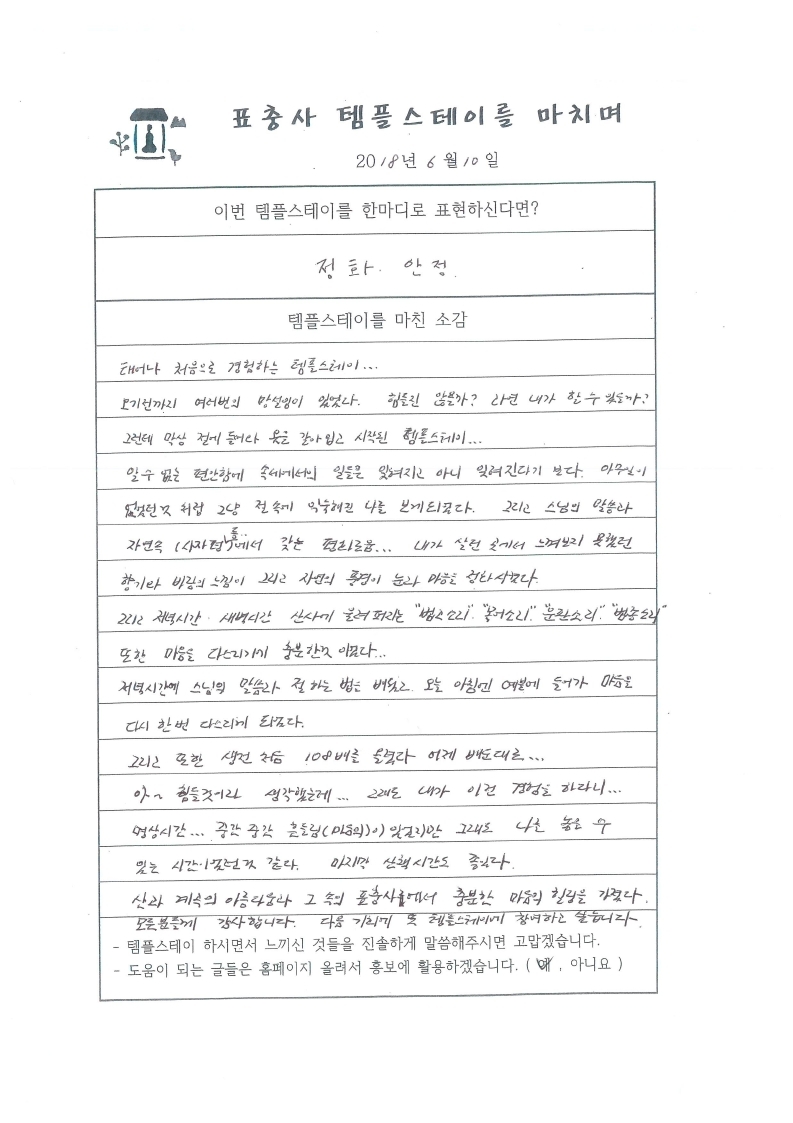 표충사 템플스테이를 마치며
2018년 6월 10일
이번 템플스테이를 한마디로 표현하신다면?
정화. 안정.
템플스테이를 마친 소감
태어나 처음으로 경험하는 템플스테이...
오기전까지 여러번의 망설임이 있었다. 힘들진 않을까? 과연 내가 할 수 있을까?
그런데 막상 절에 들어와 옷을 갈아입고 시작된 템플스테이...
알 수 없는 편안함에 속세에서의 일들은 잊혀지고 아니 잊혀진다기 보다. 아무일이
없었던것 처럼 그냥 절 속에 익숙해진 나를 보게되었다. 그리고 스님의 말씀과
자연속 (사자평)에서 갖는 편리로움... 내가 살던 곳에서 느껴보지 못했던
향기와 바람의 느낌이 그리고 자연의 풍경이 눈과 마음을 정화시켰다.
그리고 저녁시간. 새벽시간 산사에 울려퍼지는 "법고소리". "목어소리". "운판소리". "범종소리"
또한 마음을 다스리기에 충분한것 이었다...
저녁시간에 스님의 말씀과 절 하는 법을 배웠고. 오늘 아침엔 예불에 들어가 마음을
다시 한번 다스리게 되었다.
그리고 또한 생전 처음 108배를 올렸다 어제 배운대로...
아~ 힘들것이라 생각했는데... 그래도 내가 이런 경험을 하다니...
명상시간... 중간 중간 흔들림(마음의)이 있었지만 그래도 나를 놓을 수
있는 시간이었던것 같다. 마지막 산책시간도 좋았다.
산과 계곡의 아름다움과 그 속의 표충사에서 충분한 마음의 힐링을 가졌다.
모든분들께 감사합니다. 다음 기회에 또 템플스테이에 참여하고 싶습니다.
- 템플스테이 하시면서 느끼신 것들을 진솔하게 말씀해주시면 고맙겠습니다.
- 도움이 되는 글들은 홈페이지 올려서 홍보에 활용하겠습니다. ( 예 , 아니요 )